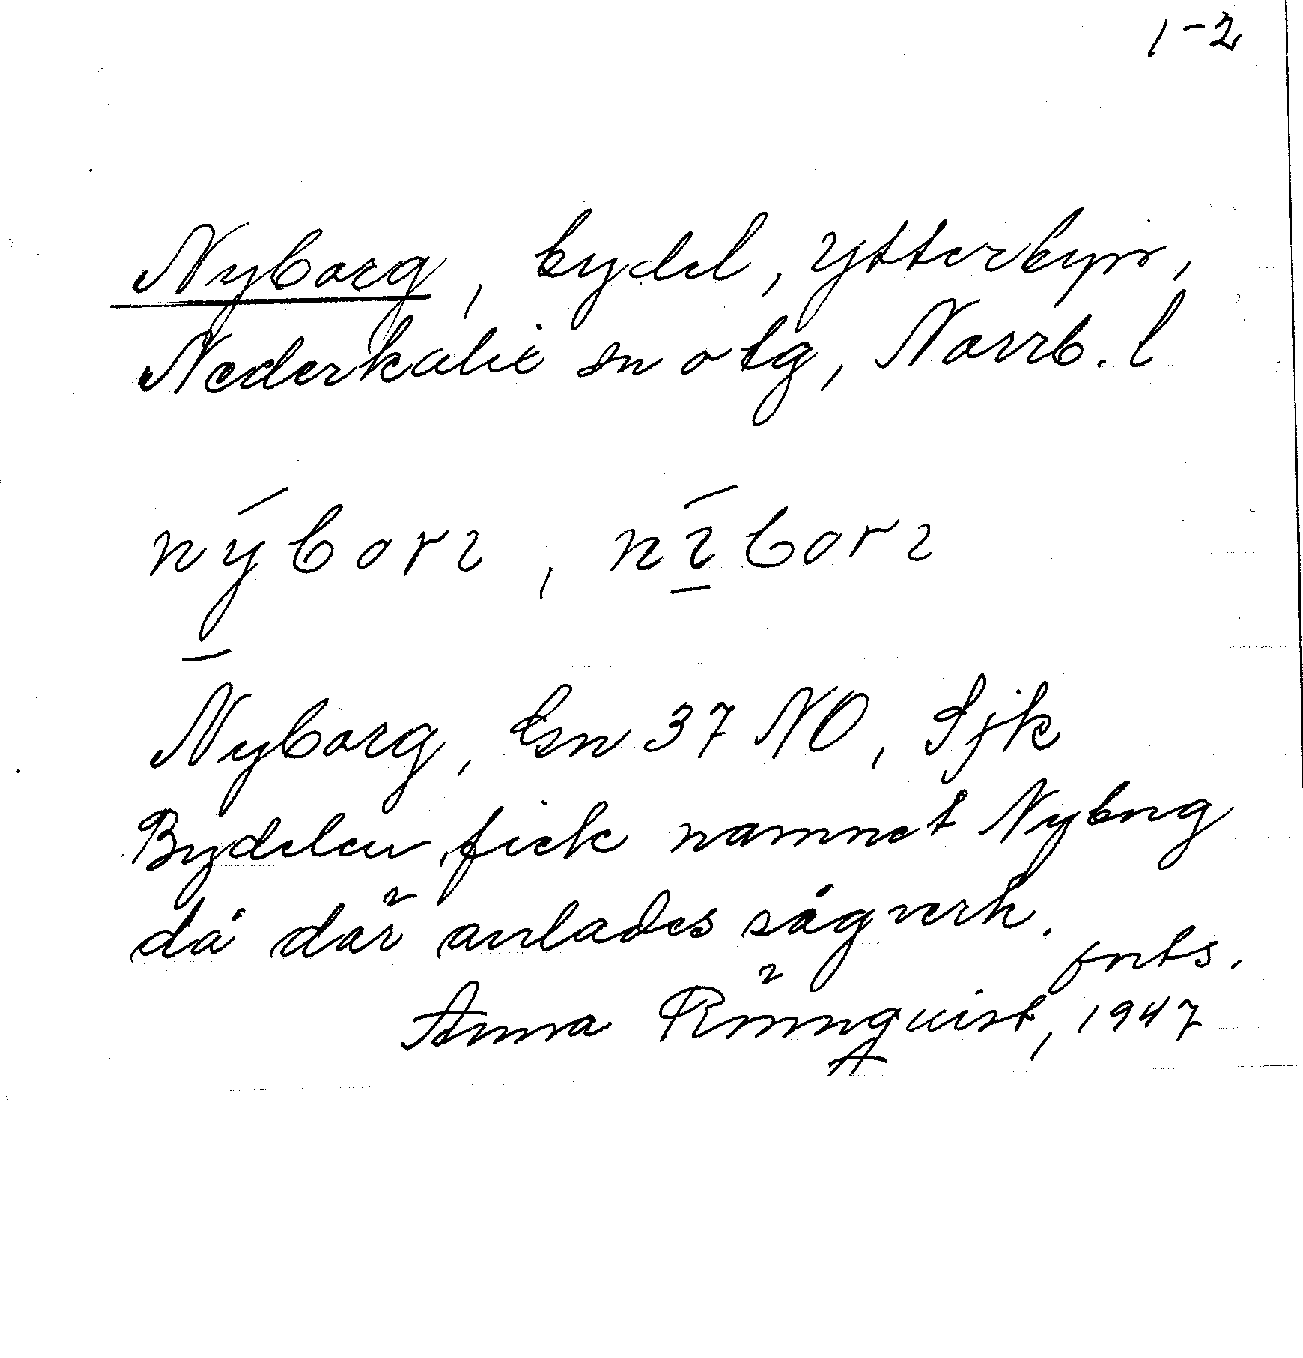 1-2
Nyborg, bydel, Ytterbyn,
Nederkalix sn o tg, Norrb. l
nýborı, nı́borı
Nyborg, Gsn 37 NO, Sjk
Bydelen fick namnet Nyborg
då där anlades sågverk.
forts.
Anna Rönnquist, 1947